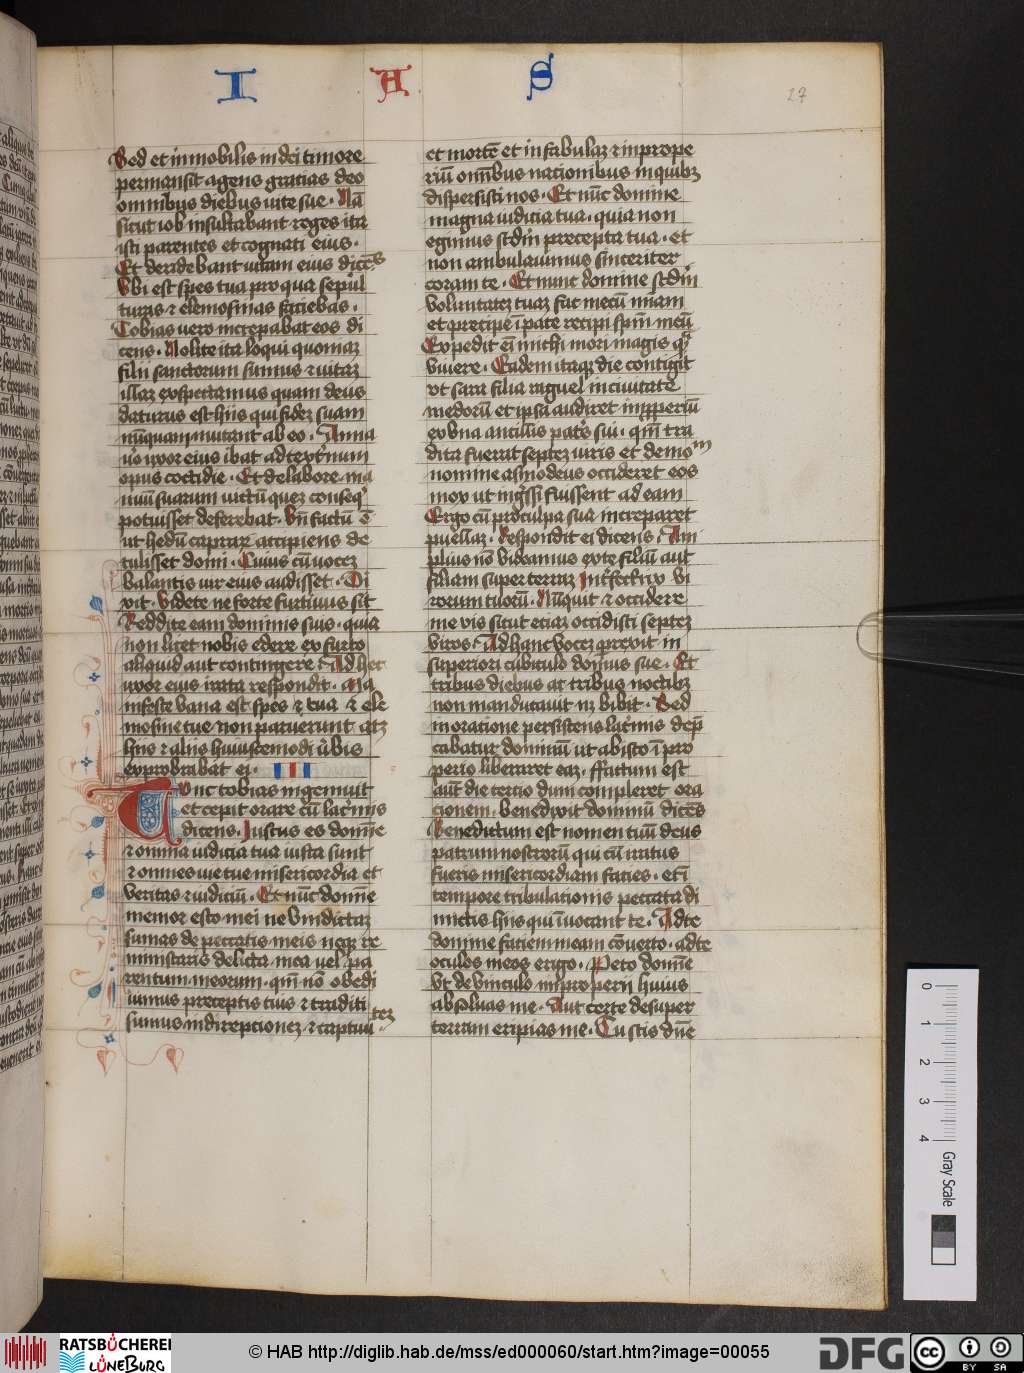 I A S
27
Sed et inmobilis in dei timore
permansit agens gracias deo
omnibus diebus uite sue. Nã
sicut iob insultabant reges ita
isti parentes et cognati eius.
Et deridebant uitam eius dicẽs
Vbi est spes tua pro qua sepul
turas ⁊ elemosinas faciebas.
Tobias uero increpabat eos di
cens. Nolite ita loqui quoniaz
filii sanctorum sumus ⁊ uitaz
illaz exspectamus quam deus
daturus est hiis qui fidez suam
nũquam mutant ab eo. Anna
uo uxor eius ibat ad textrinum
opus cottidie. Et de labore ma
nuũ suarum uictũ quez conseqͥ
potuisset deferebat. Vñ factũ ẽ
ut hedũ caprar accipiens de
tulisset domi. Cuius cũ uocez
balantis uir eius audisset. Di
xit. Videte ne forte furtiuus sit
Reddite eam dominis suis. quia
non licet nobis edere ex furto
aliquid aut contingere. Ad hec
uxor eius irata respondit. Ma
nifeste uana est spes ⁊ tua ⁊ ele
mosine tue non paruerunt atz
hiis ⁊ aliis huiuscemodi ubis
exprobrabat ei. III
Tunc tobias ingemuit
et cepit orare cũ lacrimis
dicens. Justus es domĩe
⁊ omnia iudicia tua iusta sunt
⁊ omnes uie tue misericordia et
veritas ⁊ iudiciũ. Et nũc domĩe
memor esto mei ne vindictaz
sumas de peccatis meis neqz re
miniscaris delicta mea uel pa
rentum meorum. qm̃ nõ obedi
iuimus preceptis tuis ⁊ traditi
sumus in direptionez ⁊ captiui tez
et mortẽ et in fabulaz ⁊ inprope
riũ omnibus nacionibus in quibz
dispersisti nos. Et nũc domine
magna iudicia tua. quia non
egimus scdm̃ precepta tua. et
non ambulauimus sinceriter
coram te. Et nunc domine scdm̃
voluntatez tuaz fac mecũ miãm
et precipe ĩ pace recipi spm̃ meũ
Expedit eĩ michi mori magis qͣ
viuere. Eadem itaqz die contigit
vt sara filia raguel in ciuitate
medorũ et ipsa audiret inpperiũ
ex vna ancillis patris sui. qm̃ tra
dita fuerat septez uiris et demo m
nomine asmodeus occideret eos
mox ut ing̃ssi fuissent ad eam
Ergo cũ pro culpa sua increparet
puellaz. Respondit ei dicens. Am
plius nõ videamus ex te filiũ aut
filiam super terraz interfectrix vi
rorum tuorũ. Nũquit ⁊ occidere
me vis sicut etiaz occidisti septez
viros. Ad hanc vocez prexit in
superiori cubiculo domus sue. Et
tribus diebus ac tribus noctibz
non manducauit nz bibit. Sed
in oratione persistens lac̃mis dep̃
cabatur dominũ ut ab isto ĩ pro
perio liberaret eaz. ffactum est
aut̃ die tercio dum compleret ora
cionem. benedixit dominũ dicẽs
Benedictum est nomen tuũ deus
patrum nostrorũ qui cũ iratus
fueris misericordiam facies. et ĩ
tempore tribulationis peccata di
mictis hiis qui ĩuocant te. Ad te
domine faciem meam cõuerto. ad te
oculos meos erigo. Peto domĩe
vt de vinculo improperii huius
absoluas me. Aut certe desuper
terram eripias me. Tu scis dñe
0 1 2 3 4
Gray Scale
RATSBÜCHEREI
LÜNEBURG
© HAB http://diglib.hab.de/mss/ed000060/start.htm?image=00055
DFG
cc BY SA